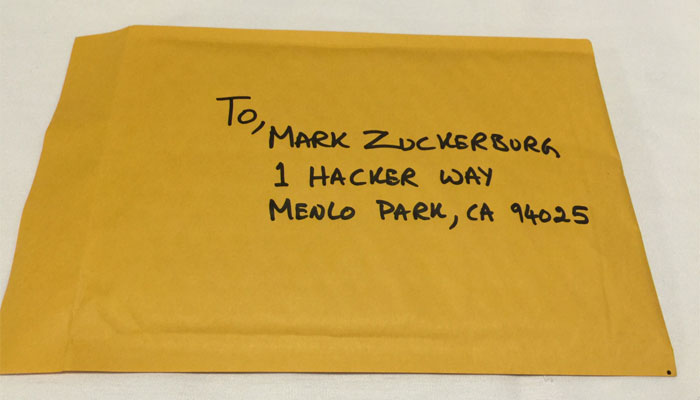 To,
MARK ZUCKERBURG
1 HACKER WAY
MENLO PARK, CA 94025